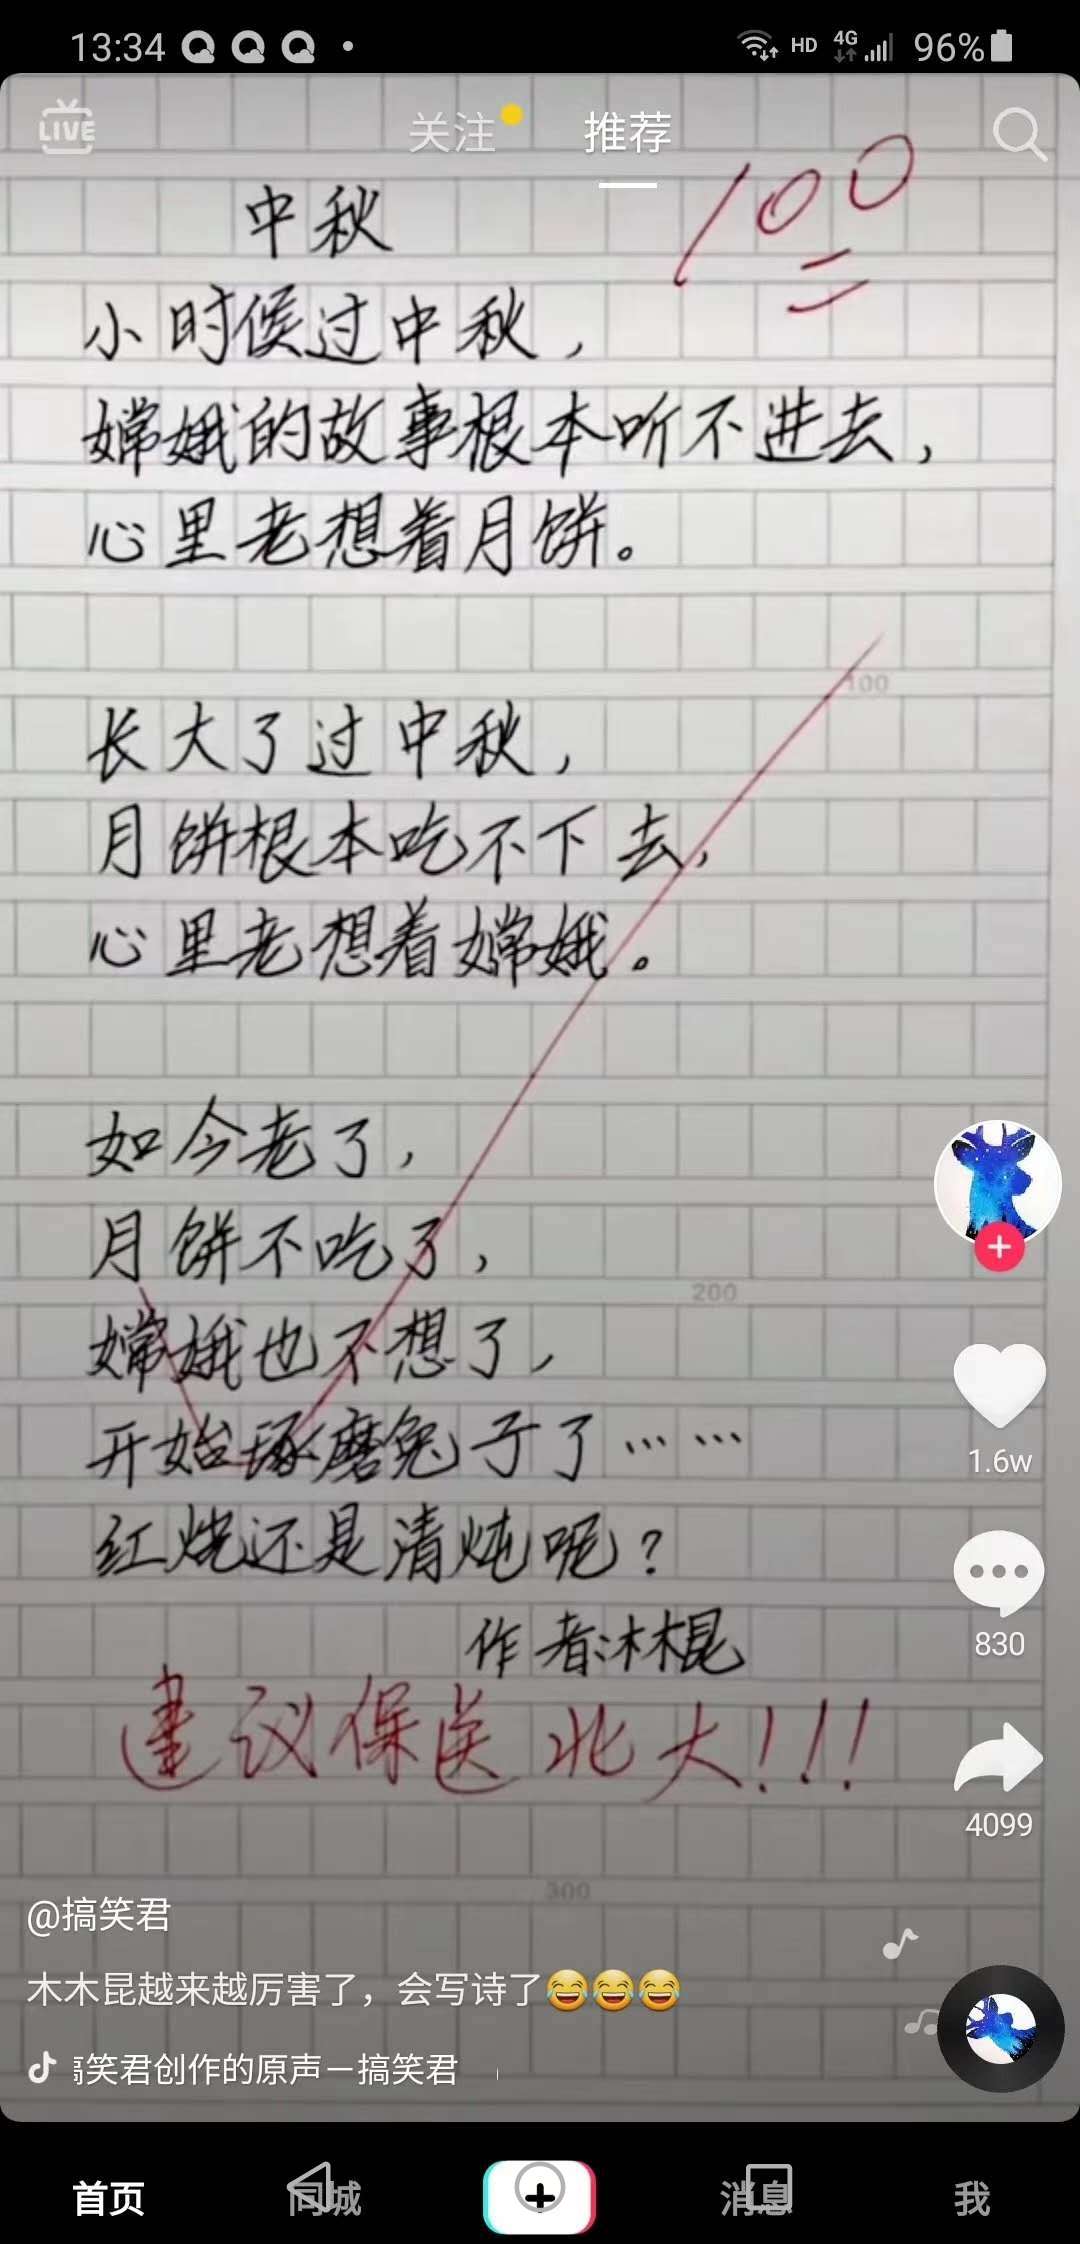 13:34
HD 4G 96%
LIVE
关注
推荐
100
中秋
小时候过中秋，
嫦娥的故事根本听不进去，
心里老想着月饼。
100
长大了过中秋，
月饼根本吃不下去，
心里老想着嫦娥。
如今老了，
月饼不吃了，
200
嫦娥也不想了，
开始琢磨兔子了……
红烧还是清炖呢？
作者：木木棍
建议保医北大！！！
300
1.6w
830
4099
@搞笑君
木木昆越来越厉害了，会写诗了😂😂😂
搞笑君创作的原声－搞笑君
首页
同城
消息
我